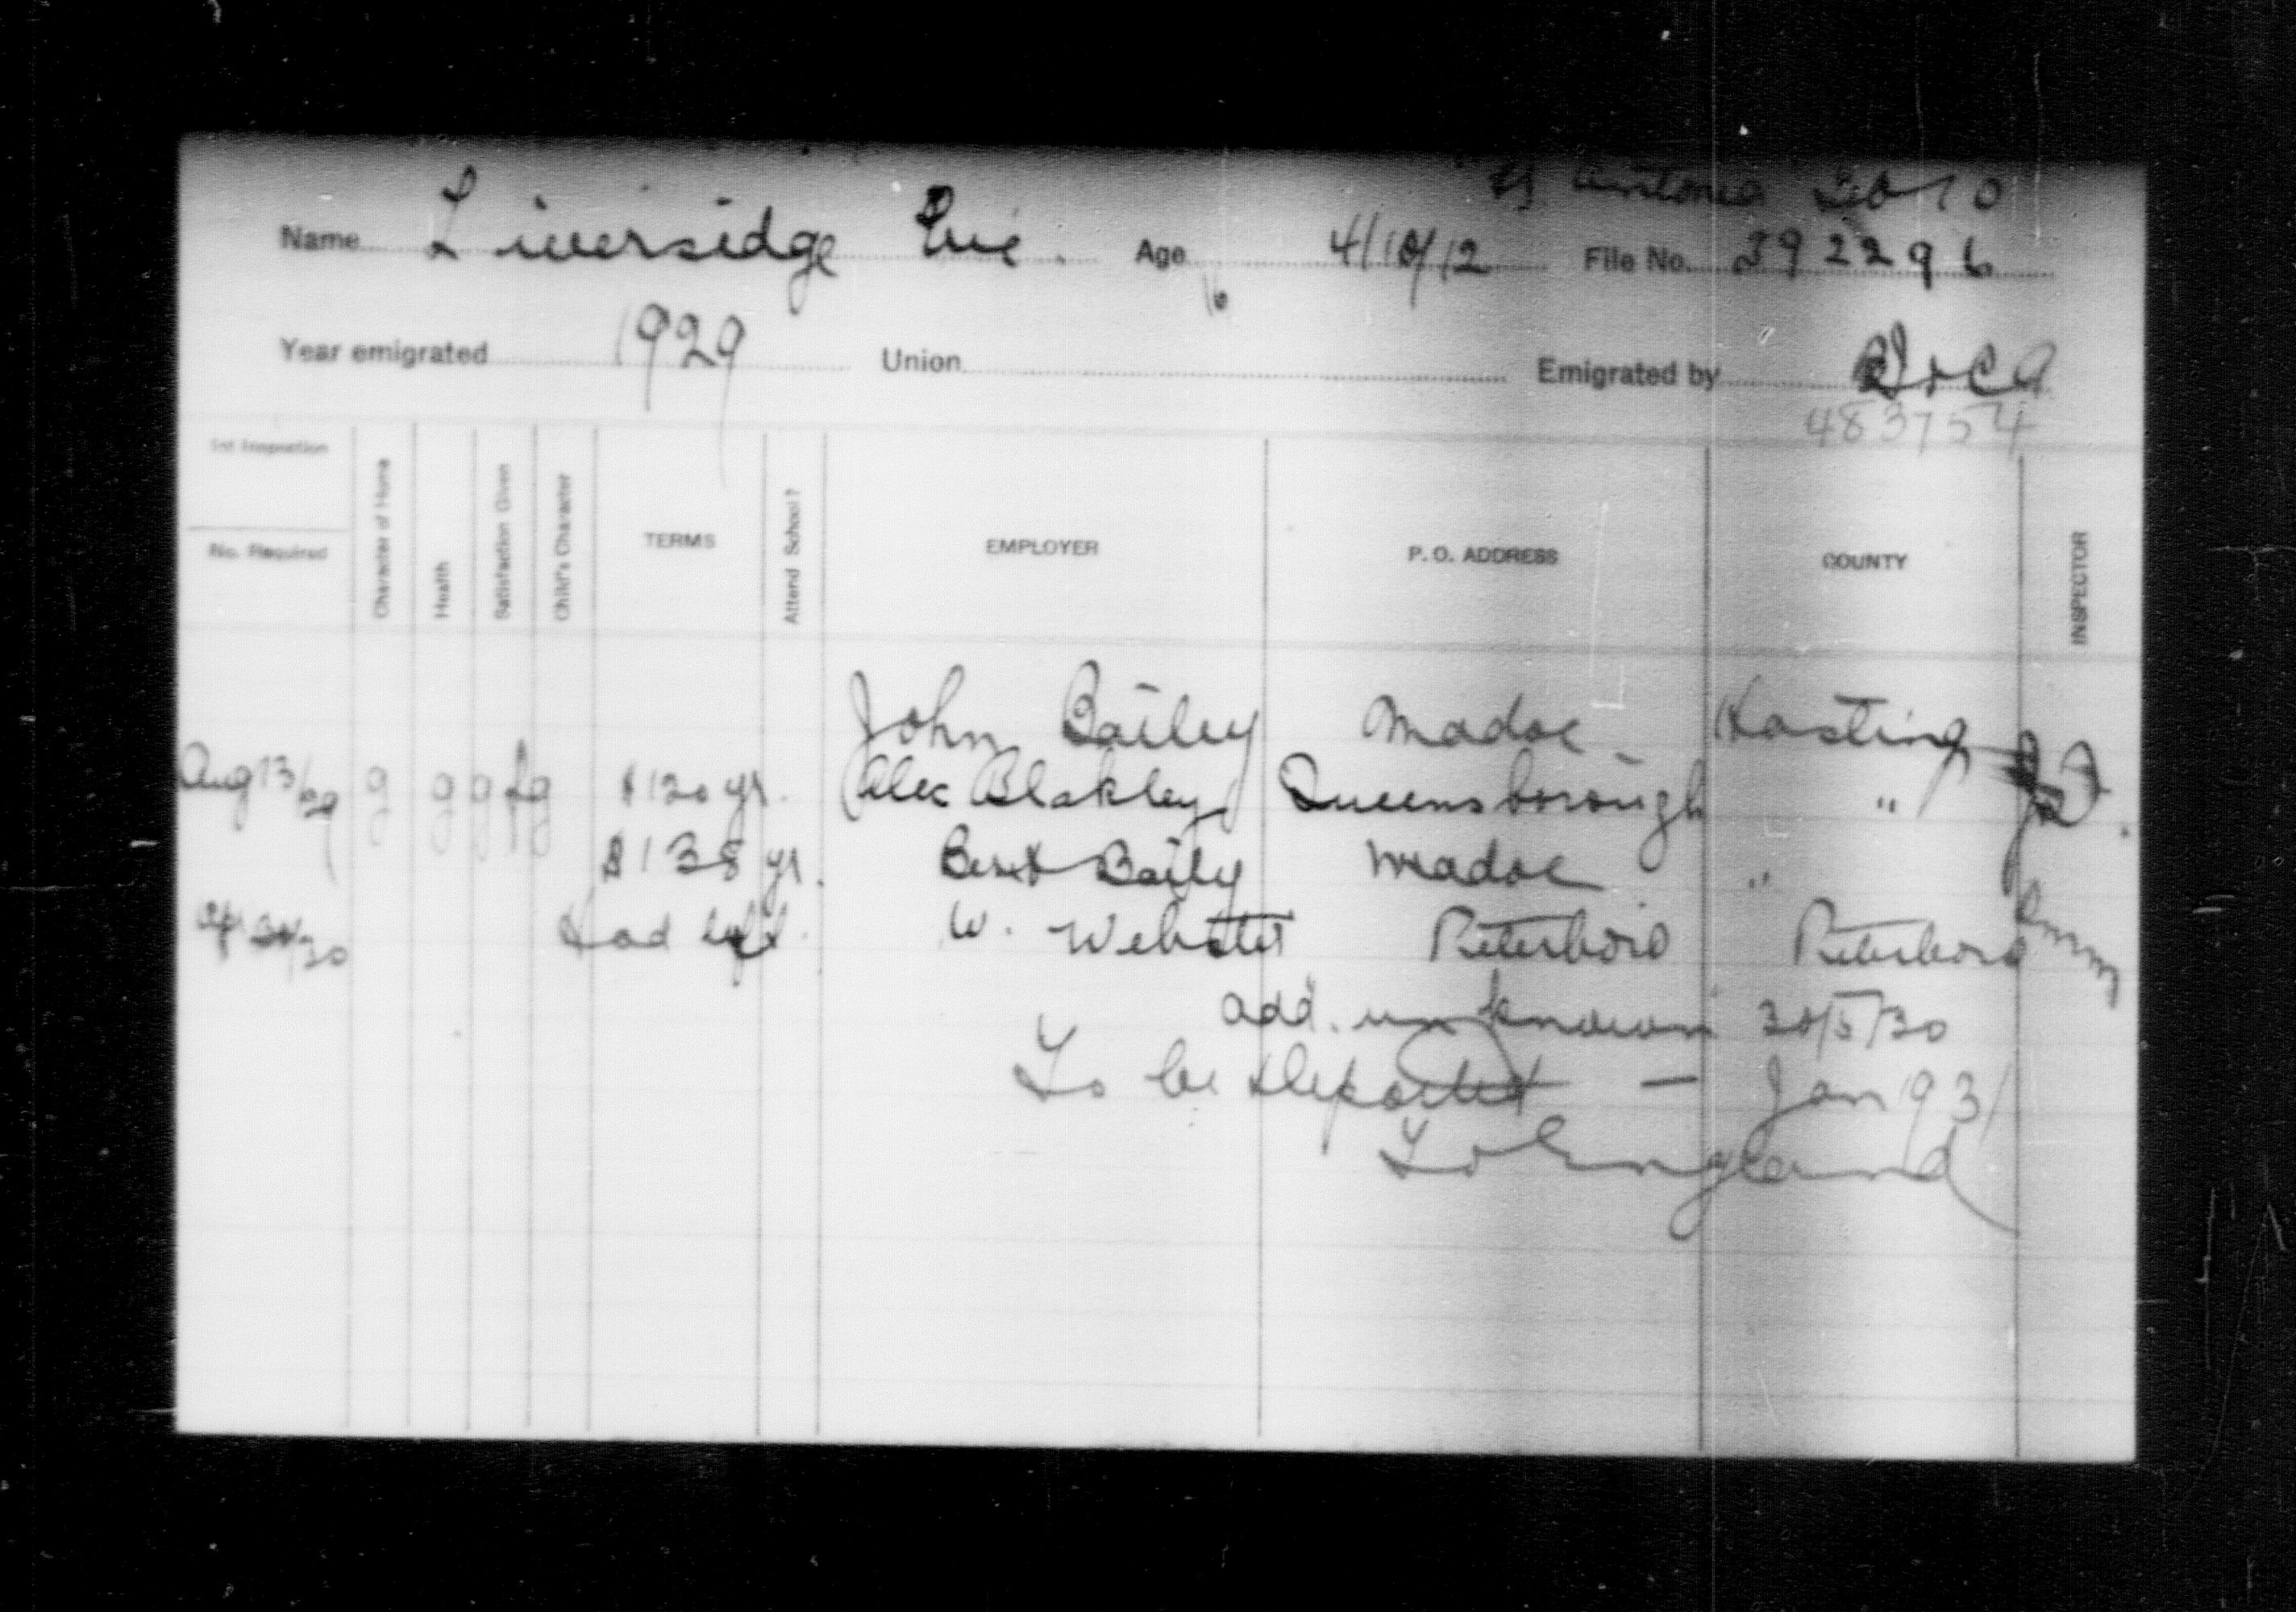 Antonia
Name Liversidge Eric. Age 4/10/12 File No. 392296
16
Year emigrated 1929 Union Emigrated by
483754
1st Inspection No. Required Character of Home Health Satisfaction Given Child's Character TERMS Attend School? EMPLOYER P. O. ADDRESS COUNTY INSPECTOR
John Bailey Madoc Hasting
Aug 13/29 g g g fg $120 yr. Alec Blakley Queensborough "
$138 yr. Bert Baily Madoc "
Had left. W. Webster Peterboro Peterboro
add. unknown 30/5/30
To be Deported — Jan 1931
To England